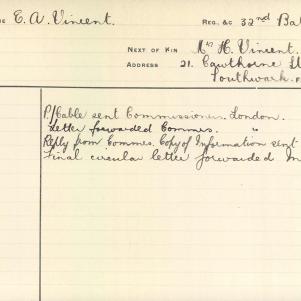 E. A. Vincent. Reg. &c 32nd Bat
Next of Kin Mrs H. Vincent.
Address 21. Cawthorne St
Southwark.
P/Cable sent Commissioner, London.
Letter forwarded Commrs. "
Reply from Commrs. Copy of Information sent
Final circular letter forwarded